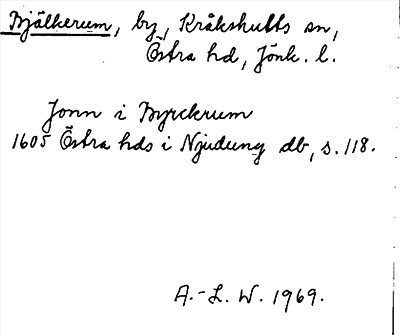 Bjälkerum, by, Kråkshults sn,
Östra hd, Jönk. l.
Jonn i Byrckrum
1605 Östra hds i Njudung db, s. 118.
A.-L. W. 1969.